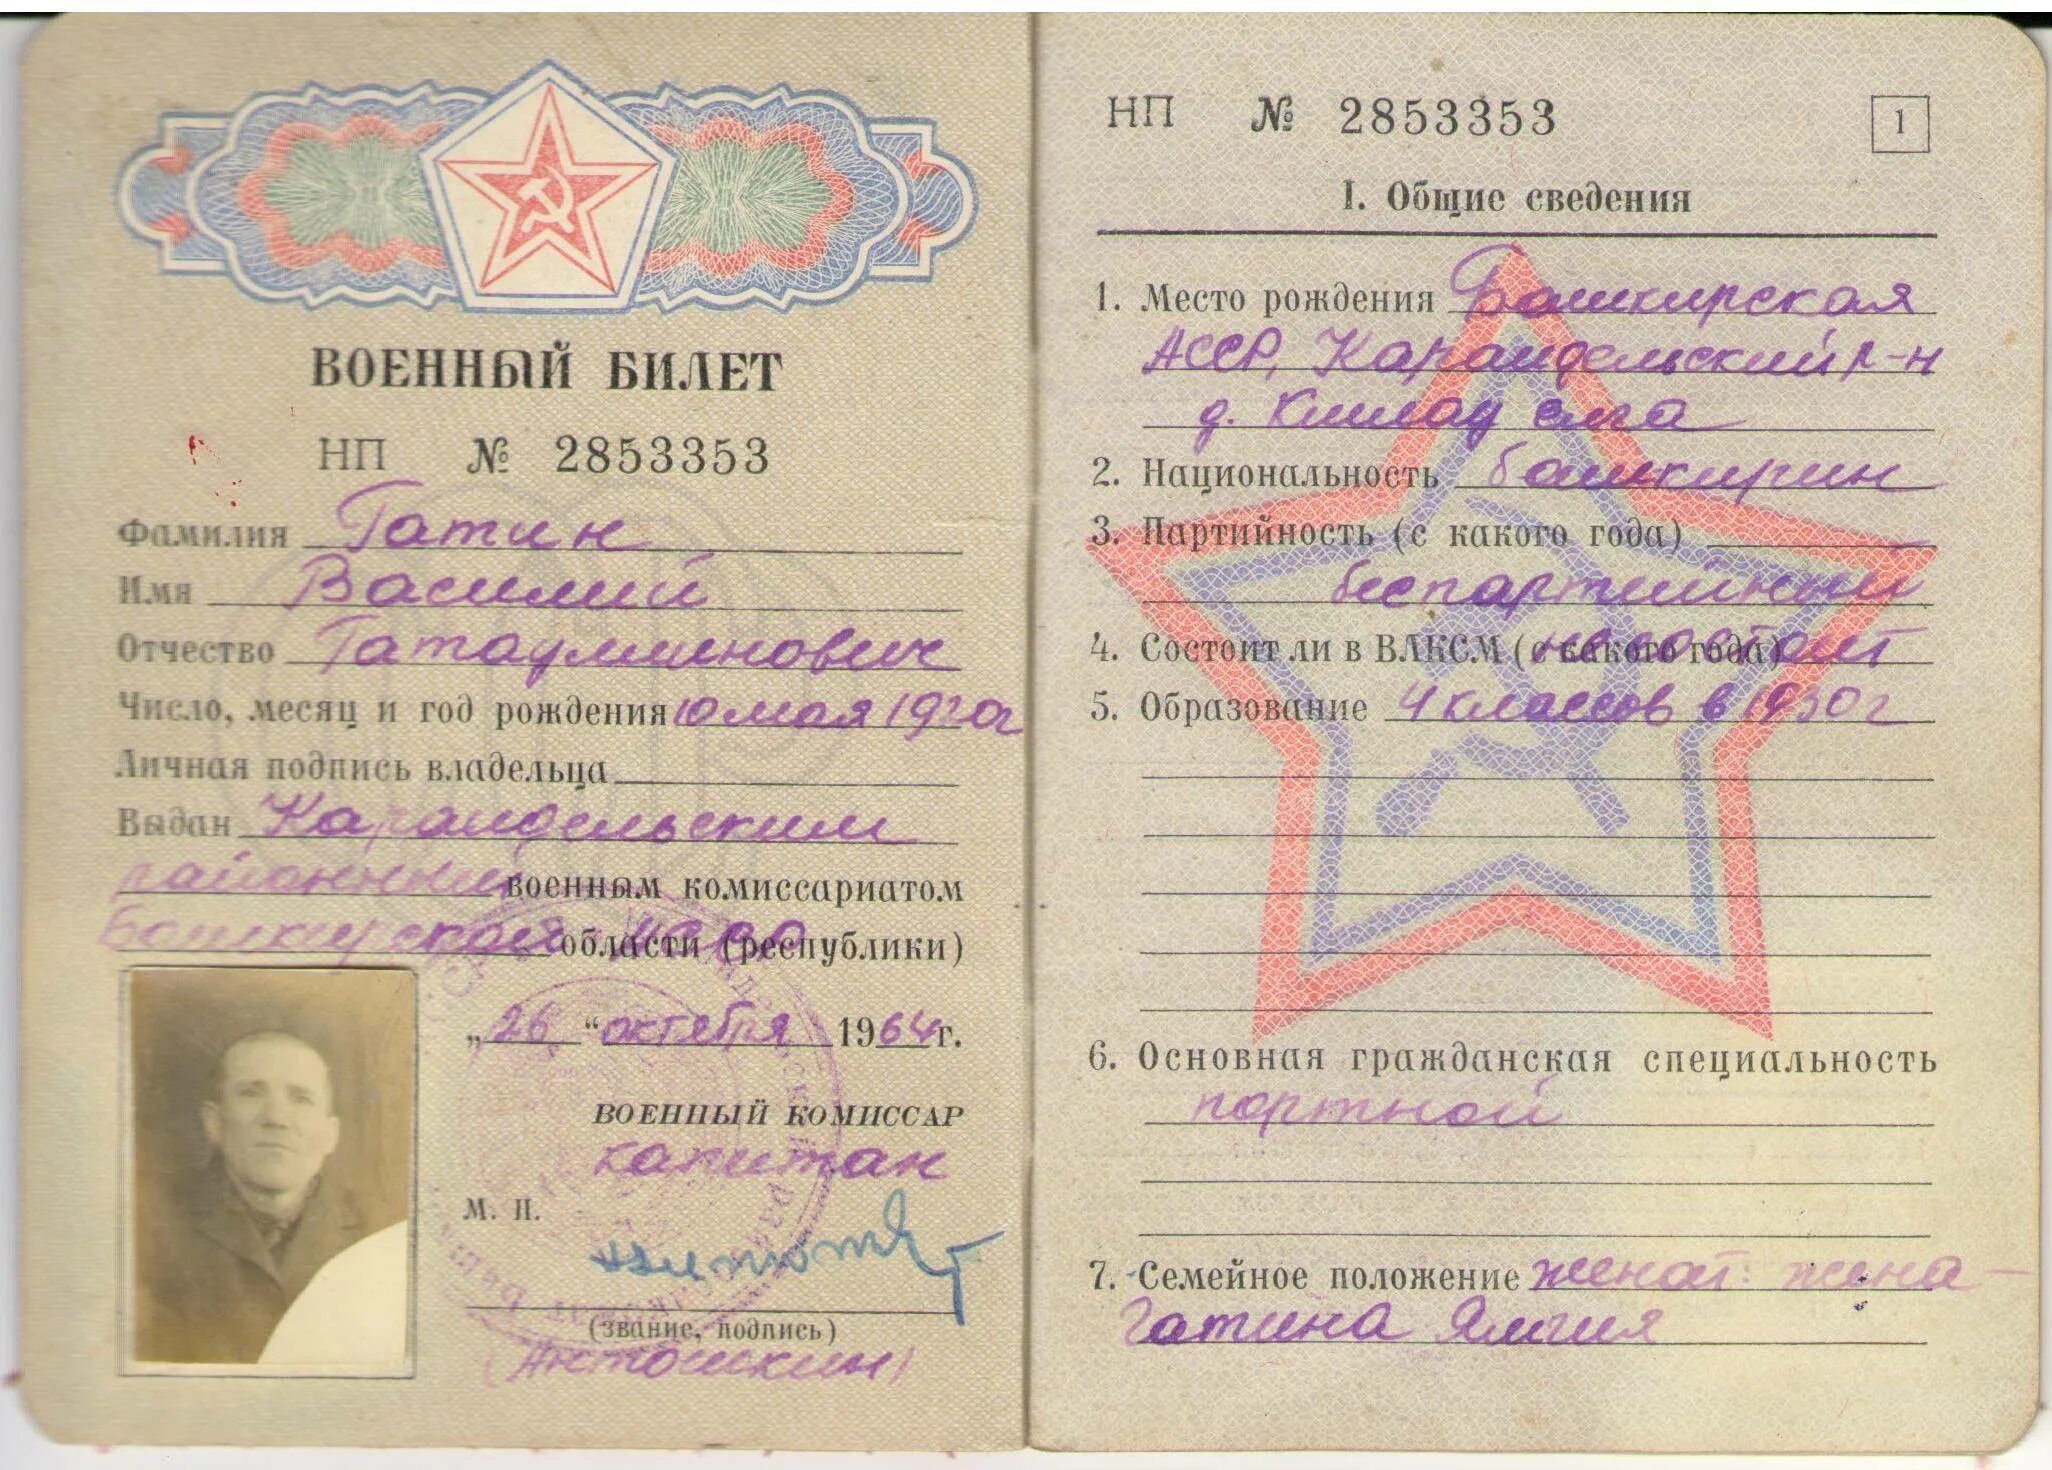 ВОЕННЫЙ БИЛЕТ
НП № 2853353
Фамилия Гатин
Имя Василий
Отчество Гатауллинович
Число, месяц и год рождения 10 мая 1920г
Личная подпись владельца
Выдан Караидельским
районным военным комиссариатом
Башкирской АССР области (республики)
„26“ октября 1964г.
ВОЕННЫЙ КОМИССАР
капитан
М. П.
(звание, подпись)
(Антошкин)
НП № 2853353
1
I. Общие сведения
1. Место рождения Башкирская
АССР, Караидельский р-н
д. елга
2. Национальность башкирин
3. Партийность (с какого года)
беспартийный
4. Состоит ли в ВЛКСМ (с какого года) не состоит
5. Образование 4 классов в 1930г
6. Основная гражданская специальность
портной
7. Семейное положение женат: жена-
Гатина Ямгия